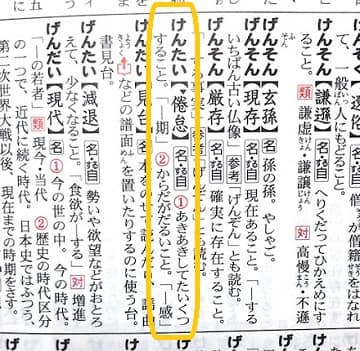 て、一般人にもどること。
けんそん【謙遜】名・ス自 へりくだってひかえめにすること。類謙虚けんきょ・謙譲けんじょう 対高慢・不遜
げんそん【玄孫】名 孫の孫。やしゃご。
げんそん【現存】名・ス自 現在あること。「―するいちばん古い仏像」参考「げんぞん」とも読む。
げんそん【厳存】名・ス自 確実に存在すること。
けんたい【倦怠】名・ス自 ①あきあきしてたいくつすること。「―期」②からだがだるいこと。「―感」
などの譜面を置いたりするのに使う台。書見台。
げんたい【減退】名・ス自 勢いや欲望などがおとろえて、少なくなること。「食欲が―する」対増進
げんだい【現代】名 ①今の世の中。今の時代。「―の若者」類現今・当代 ②歴史の時代区分の一つで、近代に続く時代。日本史ではふつう、第二次世界大戦以後、現在までの時期をさす。